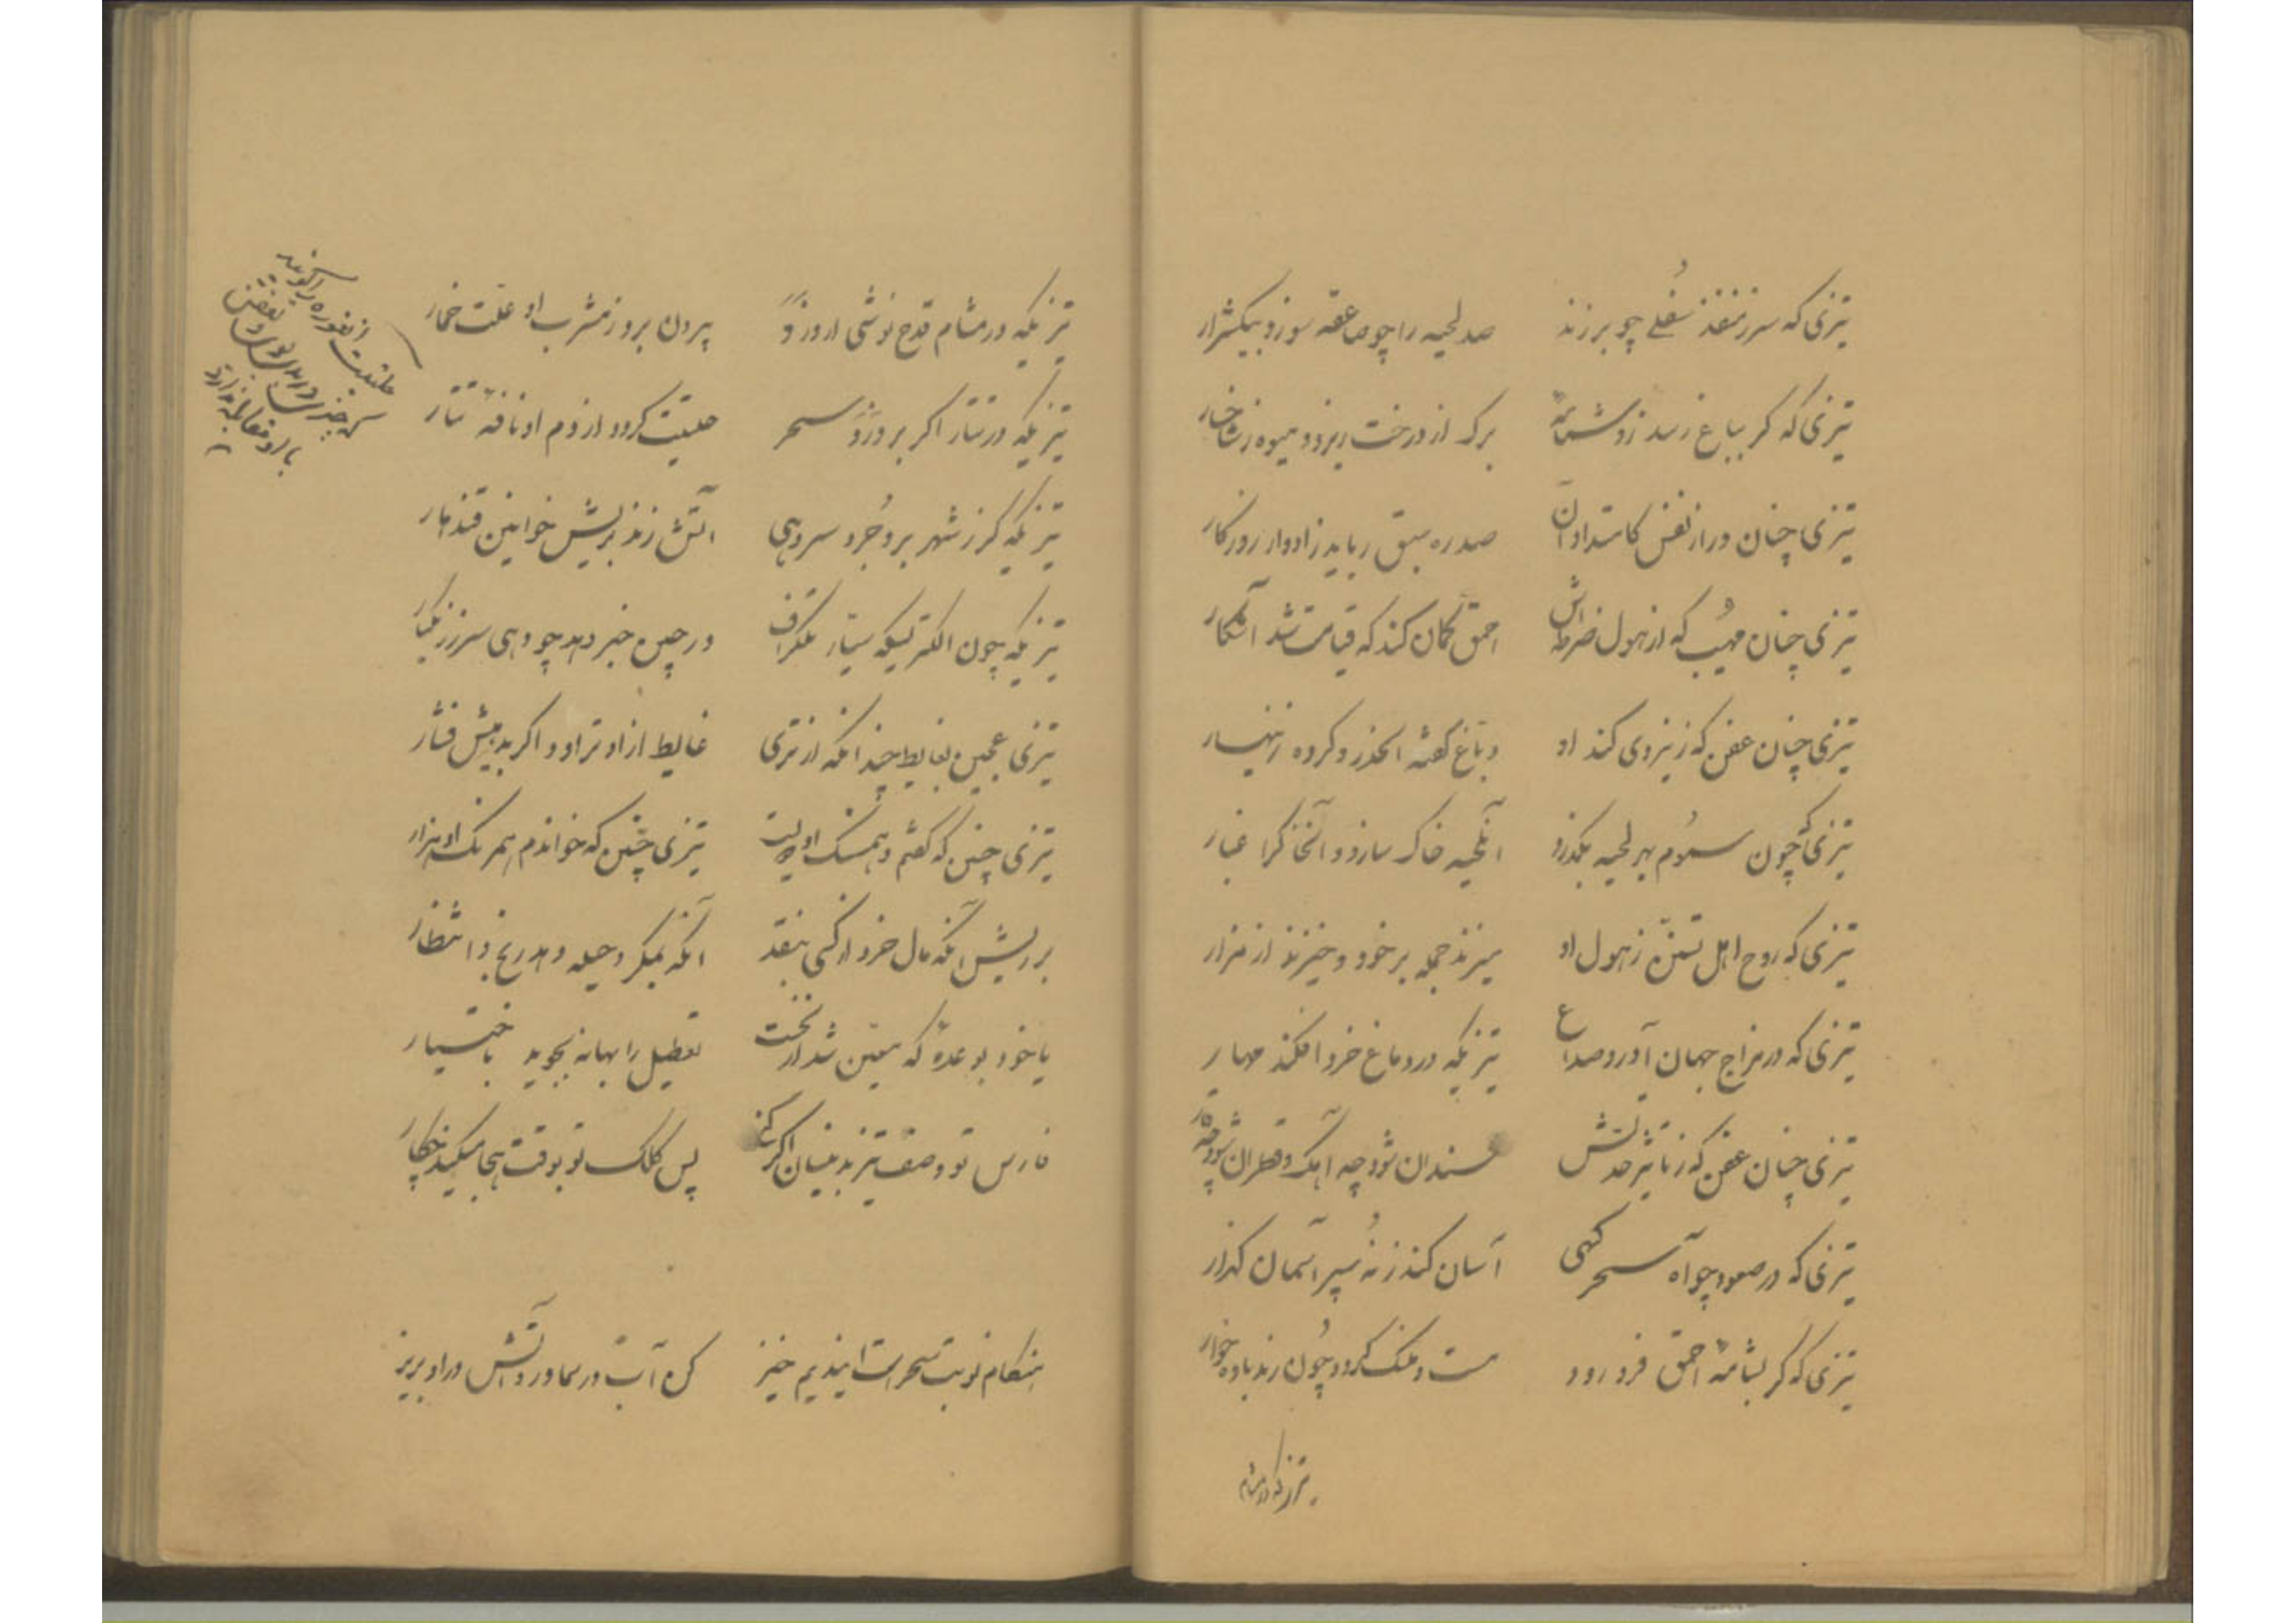 تیزی که سر ز منفذ سُفلی چو بر زند صد لحیه را چو صاعقه سوزد بیک شرار
تیزی که گر بباغ رسد زو شمامهٔ برگ از درخت ریزد و میوه ز شاخسار
تیزی چنان دراز نفس کامتداد آن صد ره سبق رباید ز ادوار روزگار
تیزی چنان مهیب که از هول ضرطه‌اش احمق گمان کند که قیامت شد آشکار
تیزی چنان عفن که ز نیزوی کند او دباغ گفته الحذر و کرده زینهار
تیزی که چون سموُم بهر لحیه بگذرد آن لحیه خاک سازد و آن خاک را غبار
تیزی که روح اهل تسنّن ز هول او میزند جمله بر خود و خیزند از مزار
تیزی که در مزاج جهان آورد صداع تیزیکه در دماغ خرد افکند مهار
تیزی چنان عفن که ز تاثیر حدتش سندان شود چه آهک و قطران شود چه
تیزی که در صعود چو آه سحر گهی آسان کند ز نُه سپر آسمان گذار
تیزی که گر بشامهٔ احمق فرو رود مست و ملنگ گردد چُون رند باده خوار
تیزیکه در مشام
تیزیکه در مشام قدح نوشی ار وزد بیرون برد ز مشرب او علّت خمار
تیزیکه در تتار اگر بروزد سحر حلتیت گردد از دم او نافهٔ تتار
تیزیکه گر ز شهر بروجُرد سر دهی آتش زند بریش خوانین قندهار
تیزیکه چون الکتریکه سیار تلگراف در چین خبر دهد چو دهی سر ز زنگبار
تیزی عجین بغایط چندانکه از تری غایط از او تراود اگر بدهیش فشار
تیزی چنین که گفتم و همسنگ او دویست تیزی چنین که خواندم همرنگ او هزار
بر ریش آنکه مال خرد از کسی بنقد آنگه بمکر و حیله دهد رنج و انتظار
یا خود بوعدهٔ که معین شد از نخست تعطیل را بهانه بجوید باختیار
فارس تو وصف تیز بدینسان اگر کنی پس کلک تو بوقت هجا میکند چکار
هنگام نوبت سحر است ایندیم خیز کن آب در سماور و آتش در او بریز
حلتیت انغوزه را گویند